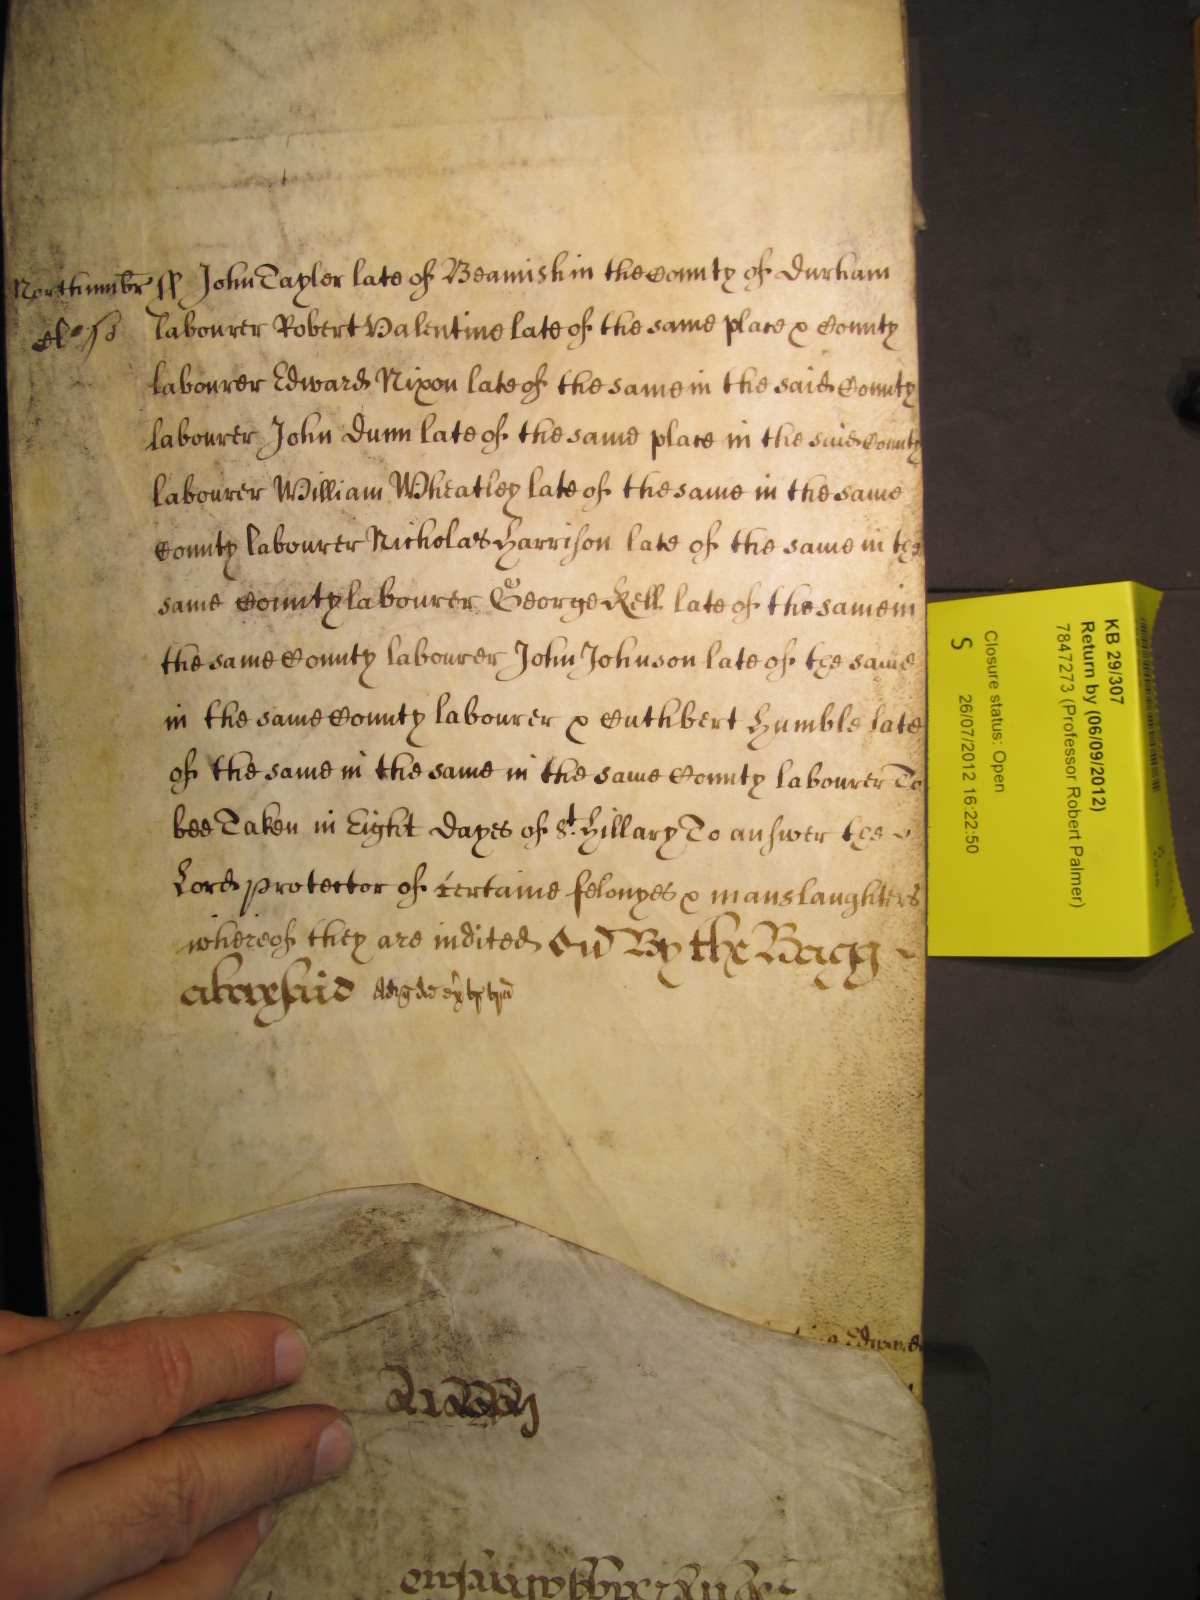 Northumbr ss John Tayler late of Beamish in the County of Durham
labourer Robert Valentine late of the same place & County
labourer Edward Nixon late of the same in the said County
labourer John Dunn late of the same place in the said County
labourer William Wheatley late of the same in the same
County labourer Nicholas Harrison late of the same in the
same County labourer George Kell late of the same in
the same County labourer John Johnson late of the same
in the same County labourer & Cuthbert Humble late
of the same in the same in the same County labourer To
bee Taken in Eight dayes of St. Hillary To answer the
Lord protector of certaine felonyes & manslaughters
whereof they are indited By the Bagg
aforesaid
Edward
KB 29/307
Return by (06/09/2012)
7847273 (Professor Robert Palmer)
Closure status: Open
S 26/07/2012 16:22:50